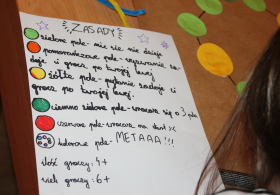 ZASADY
zielone pole - nic się nie dzieje
pomarańczowe pole - wyzwanie za-
daje ci gracz po twojej lewej
żółte pole - pytanie zadaje ci
gracz po twojej lewej
ciemno zielone pole - wracasz się o 3 pola
czerwone pole - wracasz na start
kolorowe pole - METAAA!!!
ilość graczy: 4+
wiek graczy: 6+